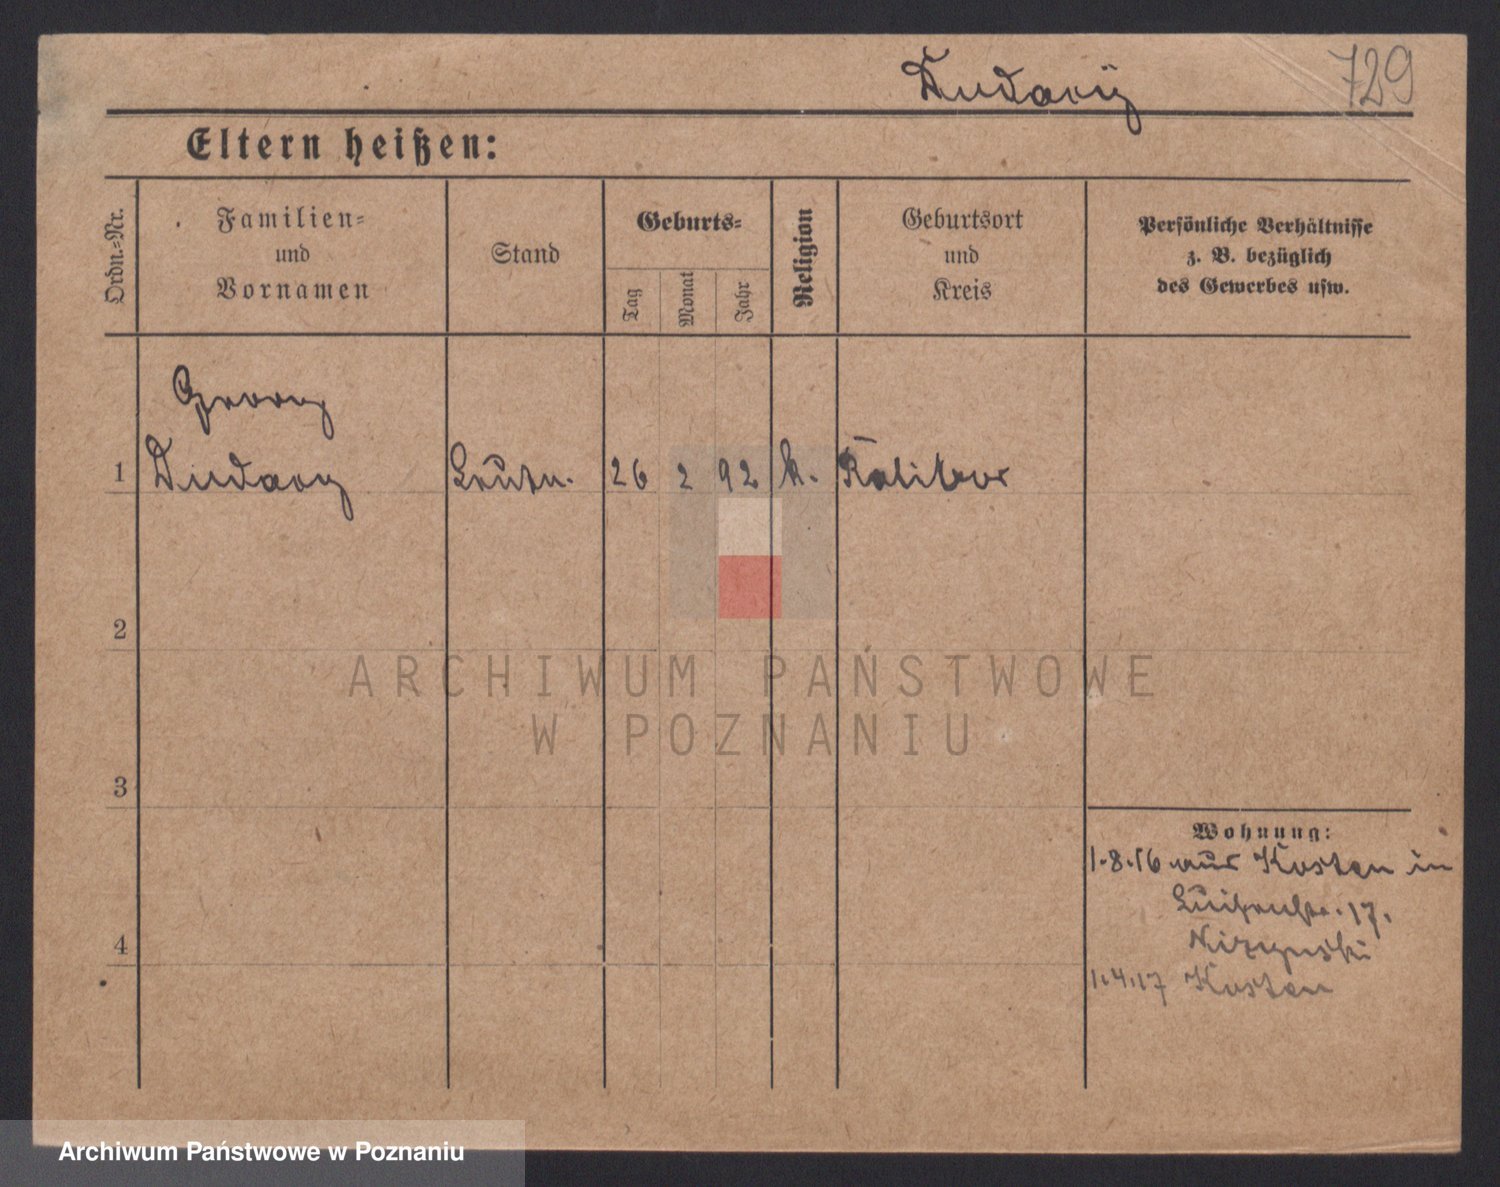 729
Eltern heißen:
Ordn.=Nr.
Familien=
und
Vornamen
Stand
Geburts=
Tag
Monat
Jahr
Religion
Geburtsort
und
Kreis
Persönliche Verhältnisse
z. B. bezüglich
des Gewerbes usw.
Georg
1 26 2 92 k. Ratibor
2
3
4
Wohnung:
1.8.16 aus Kosten in
Luisenstr. 17.
1.4.17 Kosten
ARCHIWUM PAŃSTWOWE
W POZNANIU
Archiwum Państwowe w Poznaniu